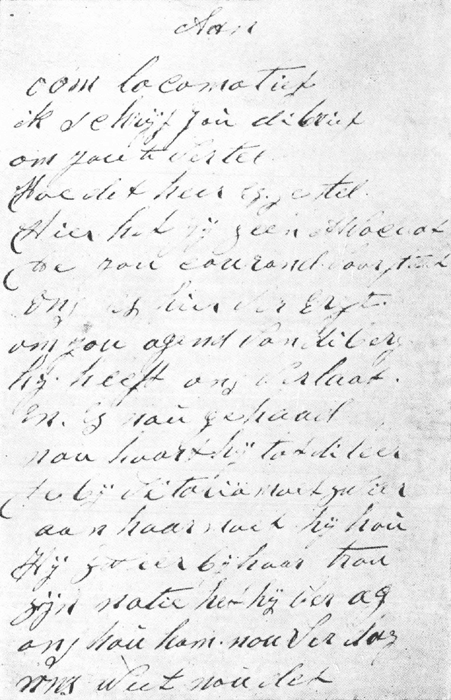 Aan
oom locomotief
ik schrijf joü di brief
om jou te vertel
Hoe dit heir is gestel
Hier het jij geen advocaat
die nou courand
ons is hier
om jou agend van di berg
hij heeft ons verlaat.
En is noü gehaail
nou hoort hij tot di leer
bij Victoria moet zweer
aan haar moet hij hoü
Hij zweer bij haar troü
zijn natie het hij ver ag
ons hoü hom nou verdag
ons weet noü det